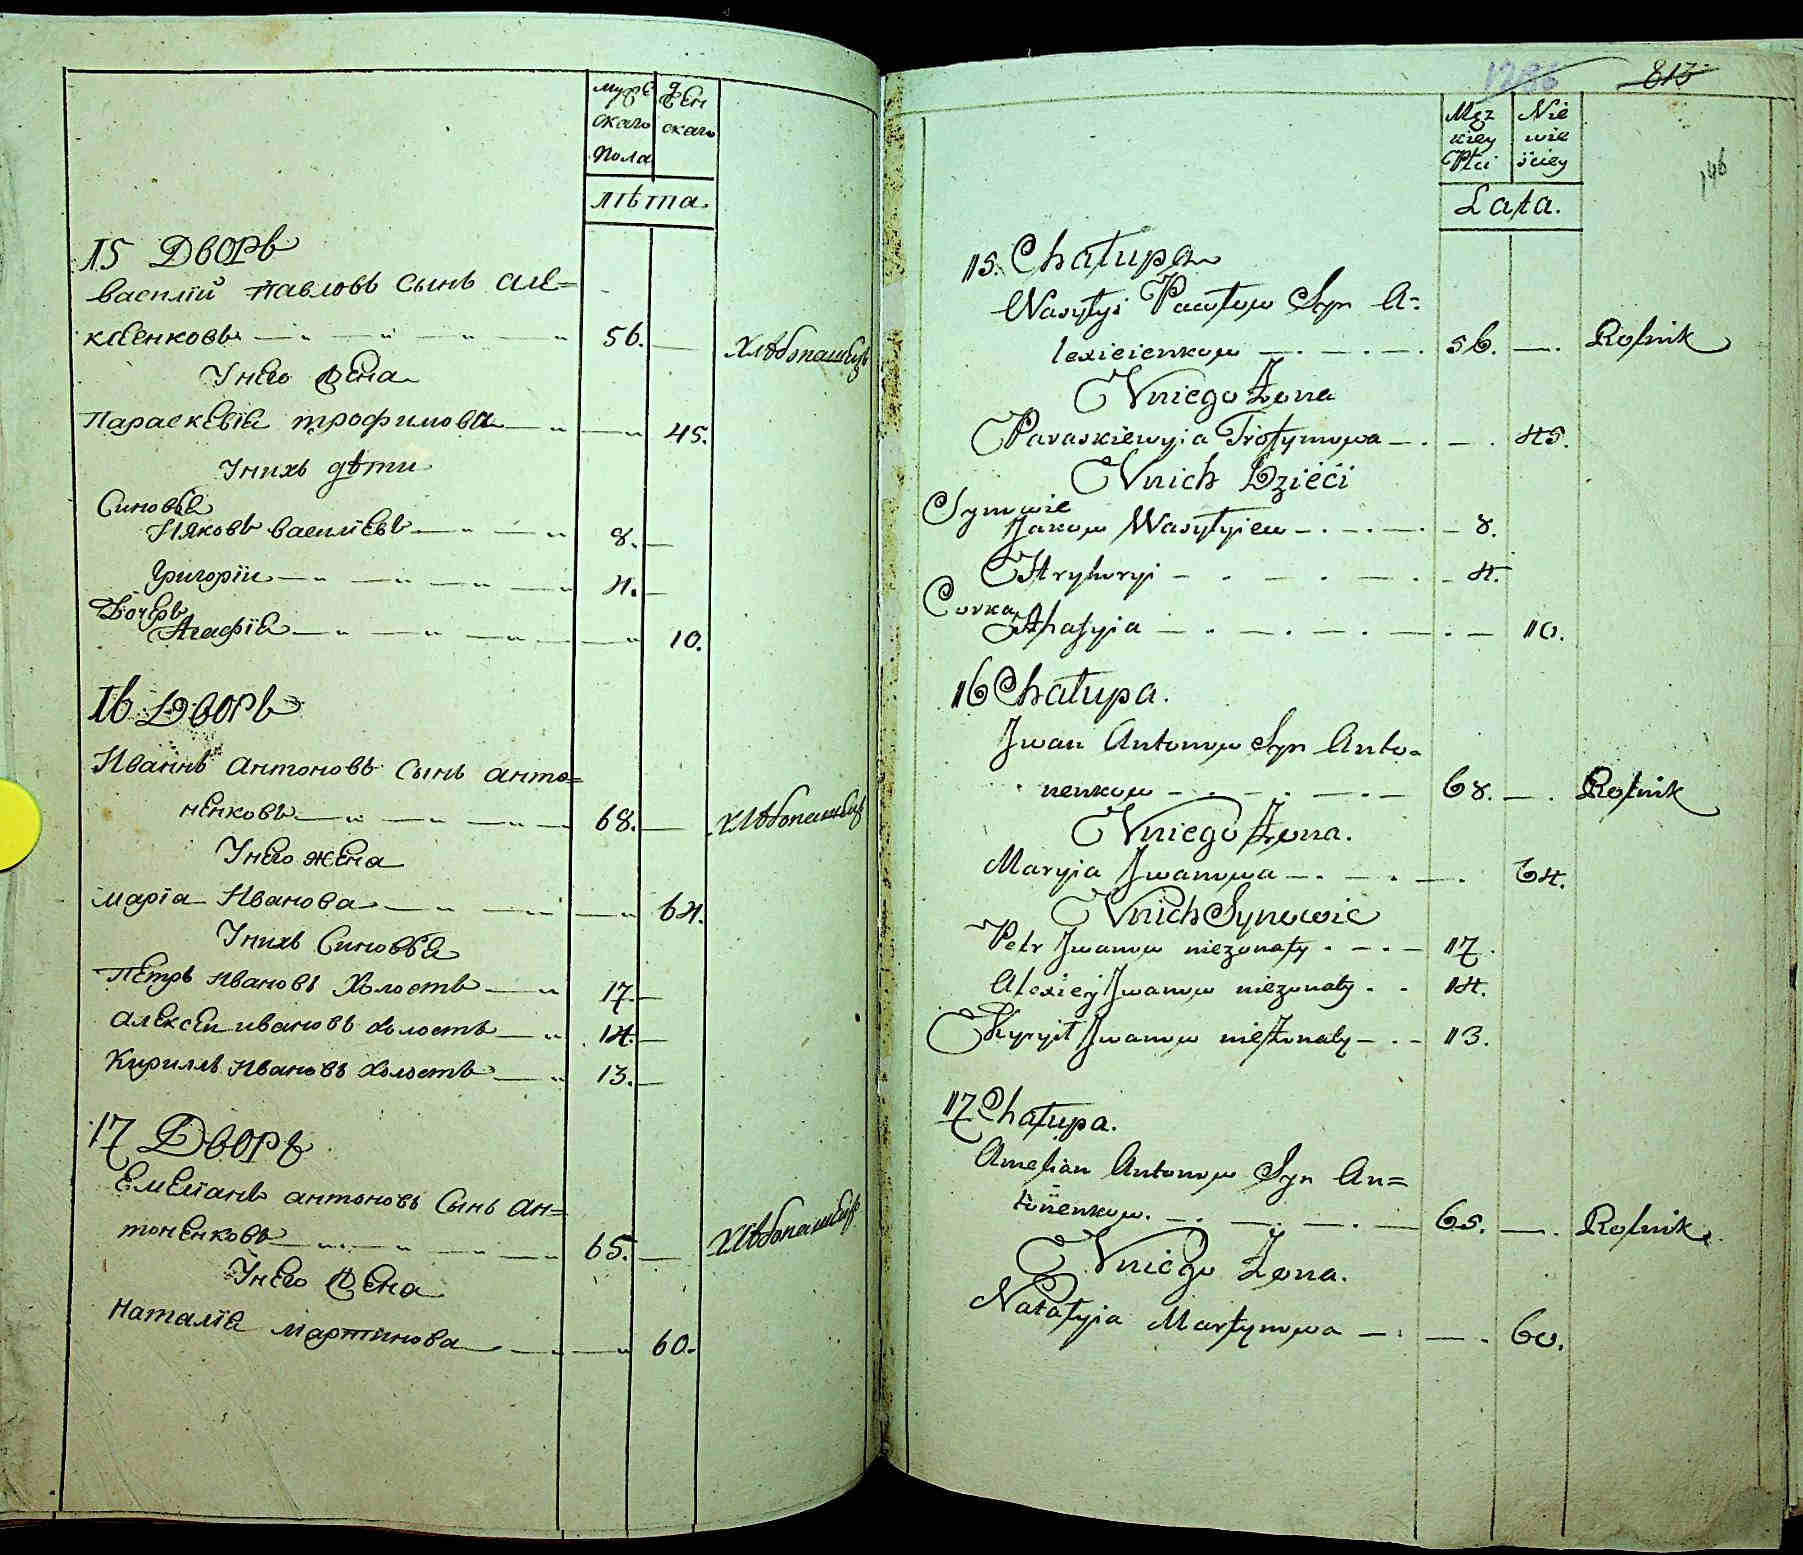 мужескаго пола
женскаго
лѣта.
15 Дворъ
василій павловъ сынъ але=
ксеенковъ 56. хлѣбопашецъ
Унего жена
Параскевіа трофимова 45.
Унихъ дѣти
Синовѣа
Няковъ василіевъ 8.
григоріи 4.
Дочерь
Агафіа 10.
16 Дворъ
Иваннъ антоновъ сынъ анто=
ненковъ 68. хлѣбопашецъ
Унего жена
маріа Иванова 64.
Унихъ Синовѣа
Петръ Ивановъ Холостъ 17.
алексеи ивановъ холостъ 14.
Кириллъ Ивановъ холостъ 13.
17 Дворъ
Емеліанъ антоновъ сынъ ан=
тоненковъ 65. хлѣбопашецъ
Унего жена
Наталіа мартинова 60.
1286 813
146
Męzkiey Płci
Niewiesciey
Lata.
15. Chałupa
Wasyłyi Pawłow Syn A=
lexieienkow 56. Rolnik
Vniego Żona
Paraskiewyia Trofymowa 45.
Vnich Dzieći
Synowie
Jakow Wasyłyiew 8.
Hryhoryi 4.
Curka
Ahafyia 10.
16 Chałupa.
Jwan Antonow Syn Anto=
nenkow 68. Rolnik
Vniego Żona.
Maryia Jwanowa 64.
Vnich Synowie
Petr Jwanow niezonaty 17.
Alexiey Jwanow niezonaty 14.
Kyryił Jwanow nieżonaty 13.
17 Chałupa.
Amelian Antonow Syn An=
tonenkow. 65. Rolnik
Vniego Żona.
Natałyia Martynowa 60.